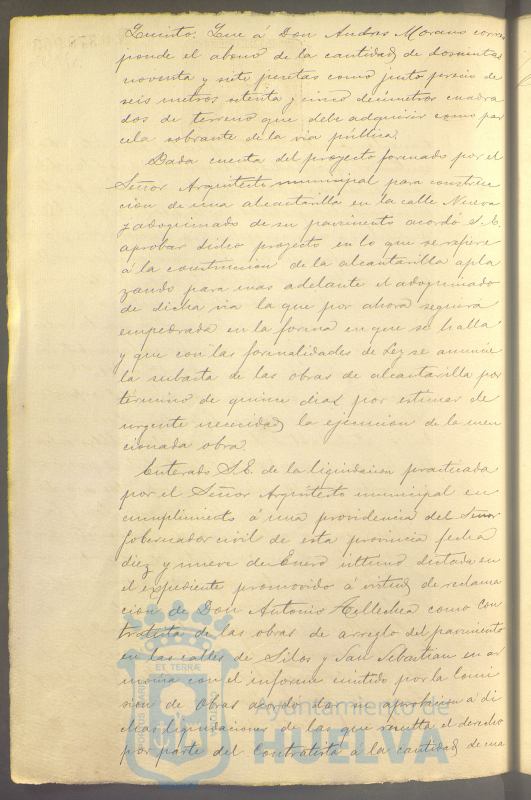 Quinto: Que á Don Andres Morano corres
ponde el abono de la cantidad de doscientas
noventa y siete pesetas como justo precio de
seis metros setenta y cinco decimetros cuadra
dos de terreno que debe adquirir como par
cela sobrante de la via pública.
Dada cuenta del proyecto formado por el
Señor Arquitecto municipal para construc
cion de una alcantarilla en la calle Nueva
y adoquinado de su pavimento acordó S. E.
aprobar dicho proyecto en lo que se refiere
á la construccion de la alcantarilla apla
zando para mas adelante el adoquinado
de dicha via la que por ahora seguira
empedrada en la forma en que se halla
y que con las formalidades de Ley se anuncie
la subasta de las obras de alcantarilla por
término de quince dias por estimar de
urgente necesidad la ejecucion de la men
cionada obra.
Enterado S. E. de la liquidacion practicada
por el Señor Arquitecto municipal en
cumplimiento á una providencia del Señor
Gobernador civil de esta provincia fecha
diez y nueve de Enero ultimo dictada en
el expediente promovido á virtud de reclama
cion de Don Antonio Tellechea como con
tratista de las obras de arreglo del pavimento
en las calles de Silos y San Sebastian en ar
monia con el informe emitido por la Comi
sion de Obras acordó dar su aprobacion á di
chas liquidaciones de las que resulta el derecho
por parte del Contratista á la cantidad de una
Ayuntamiento de
HUELVA